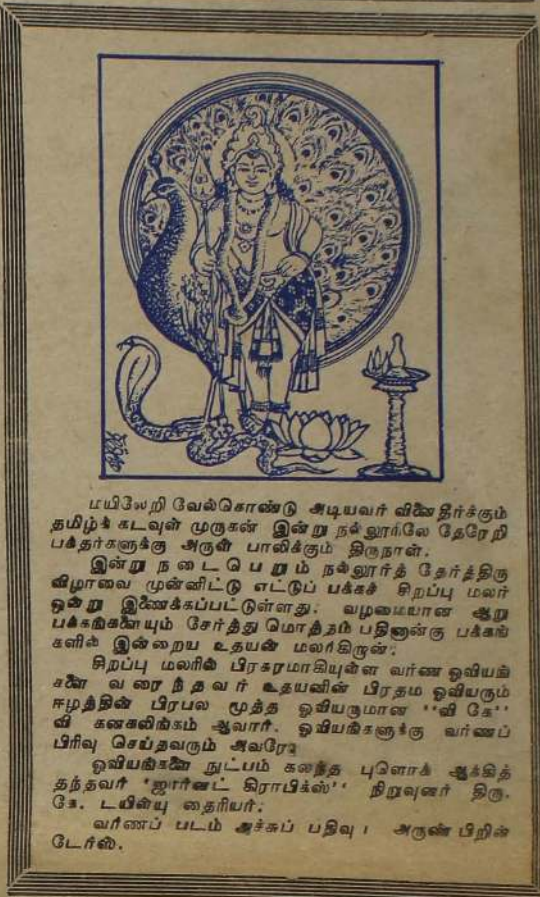 மயிலேறி வேல்கொண்டு அடியவர் வினைதீர்க்கும்
தமிழ்க் கடவுள் முருகன் இன்று நல்லூரிலே தேரேறி
பக்தர்களுக்கு அருள் பாலிக்கும் திருநாள்.
இன்று நடைபெறும் நல்லூர்த் தேர்த்திரு
விழாவை முன்னிட்டு எட்டுப் பக்கச் சிறப்பு மலர்
ஒன்று இணைக்கப்பட்டுள்ளது. வழமையான ஆறு
பக்கங்களையும் சேர்த்து மொத்தம் பதினான்கு பக்கங்
களில் இன்றைய உதயன் மலர்கிறான்.
சிறப்பு மலரில் பிரசுரமாகியுள்ள வர்ண ஓவியங்
களை வரைந்தவர் உதயனின் பிரதம ஓவியரும்
ஈழத்தின் பிரபல மூத்த ஓவியருமான "வி கே"
வி கனகலிங்கம் ஆவார். ஓவியங்களுக்கு வர்ணப்
பிரிவு செய்தவரும் அவரே.
ஓவியங்களை நுட்பம் கலந்த புளொக் ஆக்கித்
தந்தவர் 'ஜார்னட் கிராபிக்ஸ்'' நிறுவுனர் திரு.
கே. டயின்யு தைரியர்.
வர்ணப் படம் அச்சுப் பதிவு : அருண் பிறின்
டேர்ஸ்.